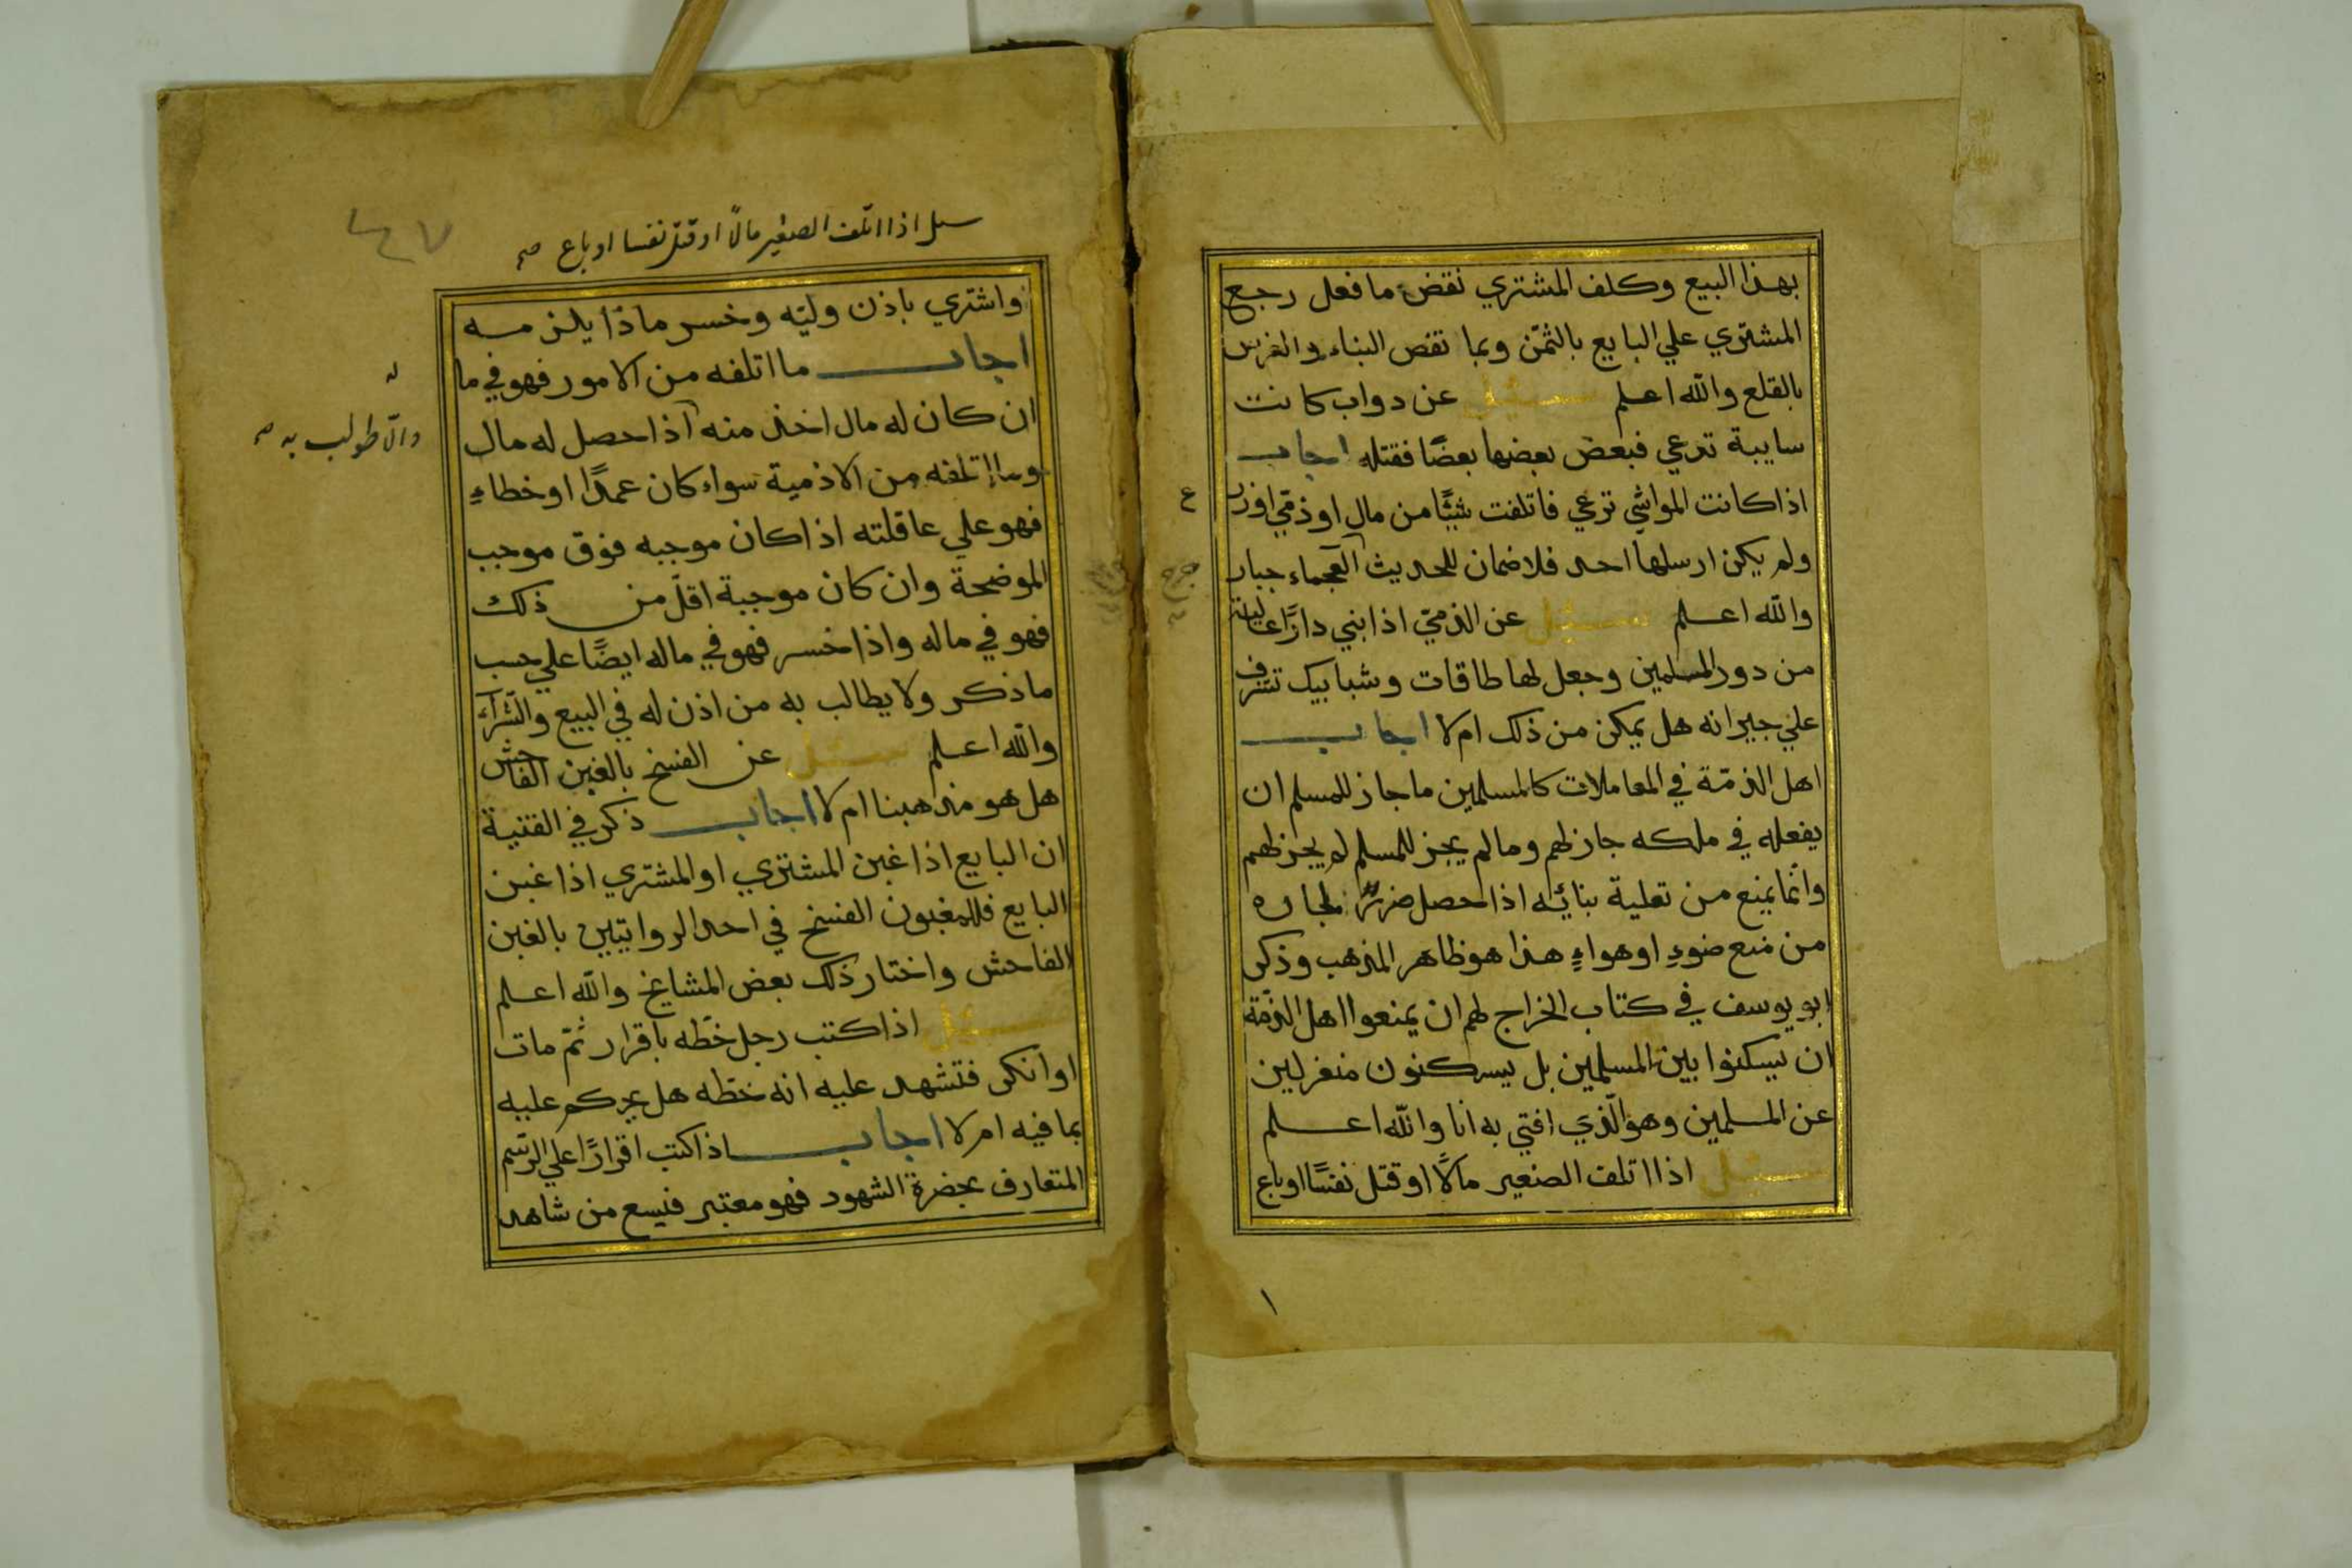 بهذا البيع وكلف المشتري نقض ما فعل رجع
المشتري علي البايع بالثمن وبما نقص البناء والغرس
بالقلع والله اعلم سئل عن دواب كانت
سايبة ترعي فبعض بعضها بعضًا فقتله اجاب
اذا كانت المواشي ترعي فاتلفت شيئًا من مال اوذمّي اوزرع
ولم يكن ارسلها احد فلا ضمان للحديث العجماء جبار
والله اعلم سئل عن الذمّي اذا بني دارًا عالية
من دور المسلمين وجعل لها طاقات وشبابيك تشرف
علي جيرانه هل يمكن من ذلك ام لا اجاب
اهل الذمّة في المعاملات كالمسلمين ما جاز للمسلم ان
يفعله في ملكه جاز لهم وما لم يجز للمسلم لم يجز لهم
وانما يمنع من تعلية بنائه اذا حصل ضررٌ لجاره
من منع ضوءٍ او هواءٍ هذا هو ظاهر المذهب وذكر
ابو يوسف في كتاب الخراج لهم ان يمنعوا اهل الذمّة
ان يسكنوا بين المسلمين بل يسكنون منعزلين
عن المسلمين وهو الّذي افتي به انا والله اعلم
سئل اذا اتلف الصغير مالًا او قتل نفسًا اوباع
١
سىل اذا اتلف الصغير مالًا او قتل نفسا او باع صح
واشتري باذن وليّه وخسر ماذا يلزمه
اجاب ما اتلفه من الامور فهو في ما
له
ان كان له مال اخذ منه اذا حصل له مال
والّا طولب به صح
وما اتلفه من الاذمية سواء كان عمدًا او خطاءٍ
فهو علي عاقلته اذا كان موجبه فوق موجب
الموضحة وان كان موجبة اقلّ من ذلك
فهو في ماله واذا خسر فهو في ماله ايضًا علي حسب
ما ذكر ولا يطالب به من اذن له في البيع والشّرآء
والله اعلم سئل عن الفسخ بالغبن الفاحش
هل هو مذهبنا ام لا اجاب ذكر في القنية
ان البايع اذا غبن المشتري او المشتري اذا غبن
البايع فللمغبون الفسخ في احد الروايتين بالغبن
الفاحش واختار ذلك بعض المشايخ والله اعلم
سئل اذا كتب رجل خطّه باقرار ثمّ مات
او انكر فتشهد عليه انه خطّه هل يحكم عليه
بما فيه ام لا اجاب اذا كتب اقرارًا علي الرّسم
المتعارف بحضرة الشهود فهو معتبر فيسع من شاهد